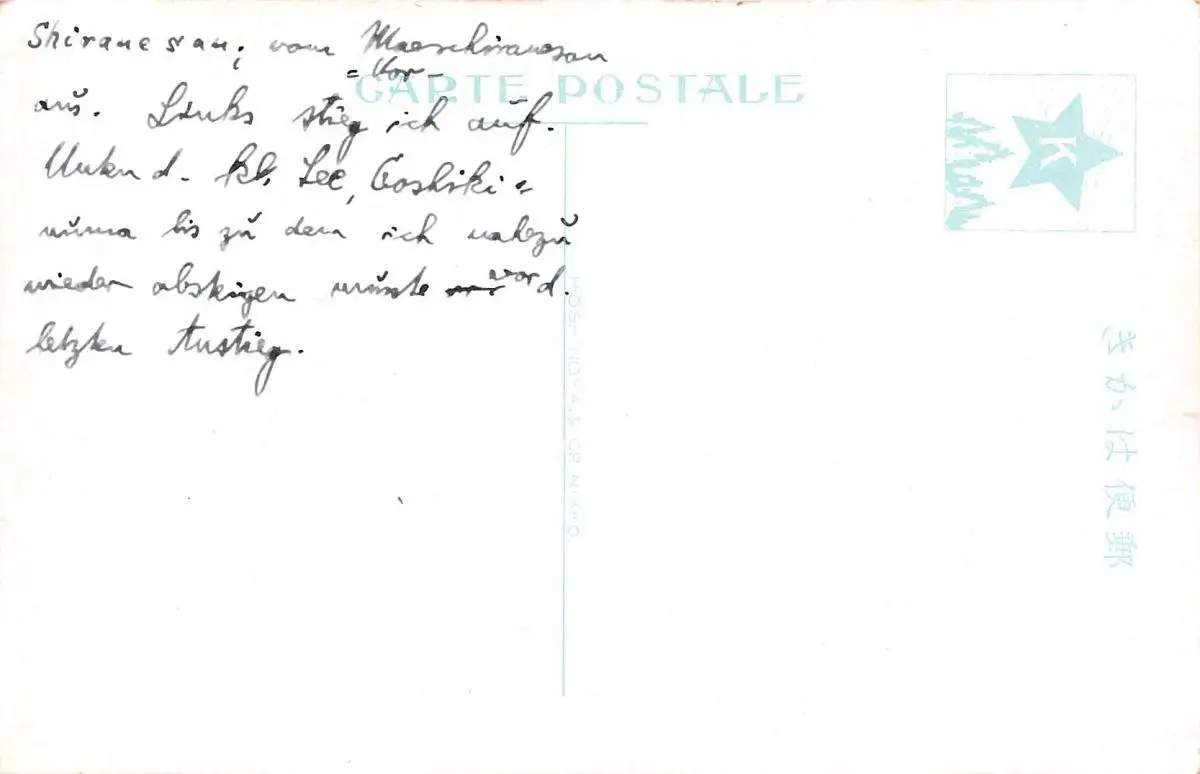 Shiranesan; vom Maeschiranesan
= Vor -
aus. Links stieg ich auf.
Unten d. kl. See, Goshiki=
numa bis zu dem ich nahezu
wieder absteigen musste vor d.
letzten Anstieg.
CARTE POSTALE
K
きかは便郵